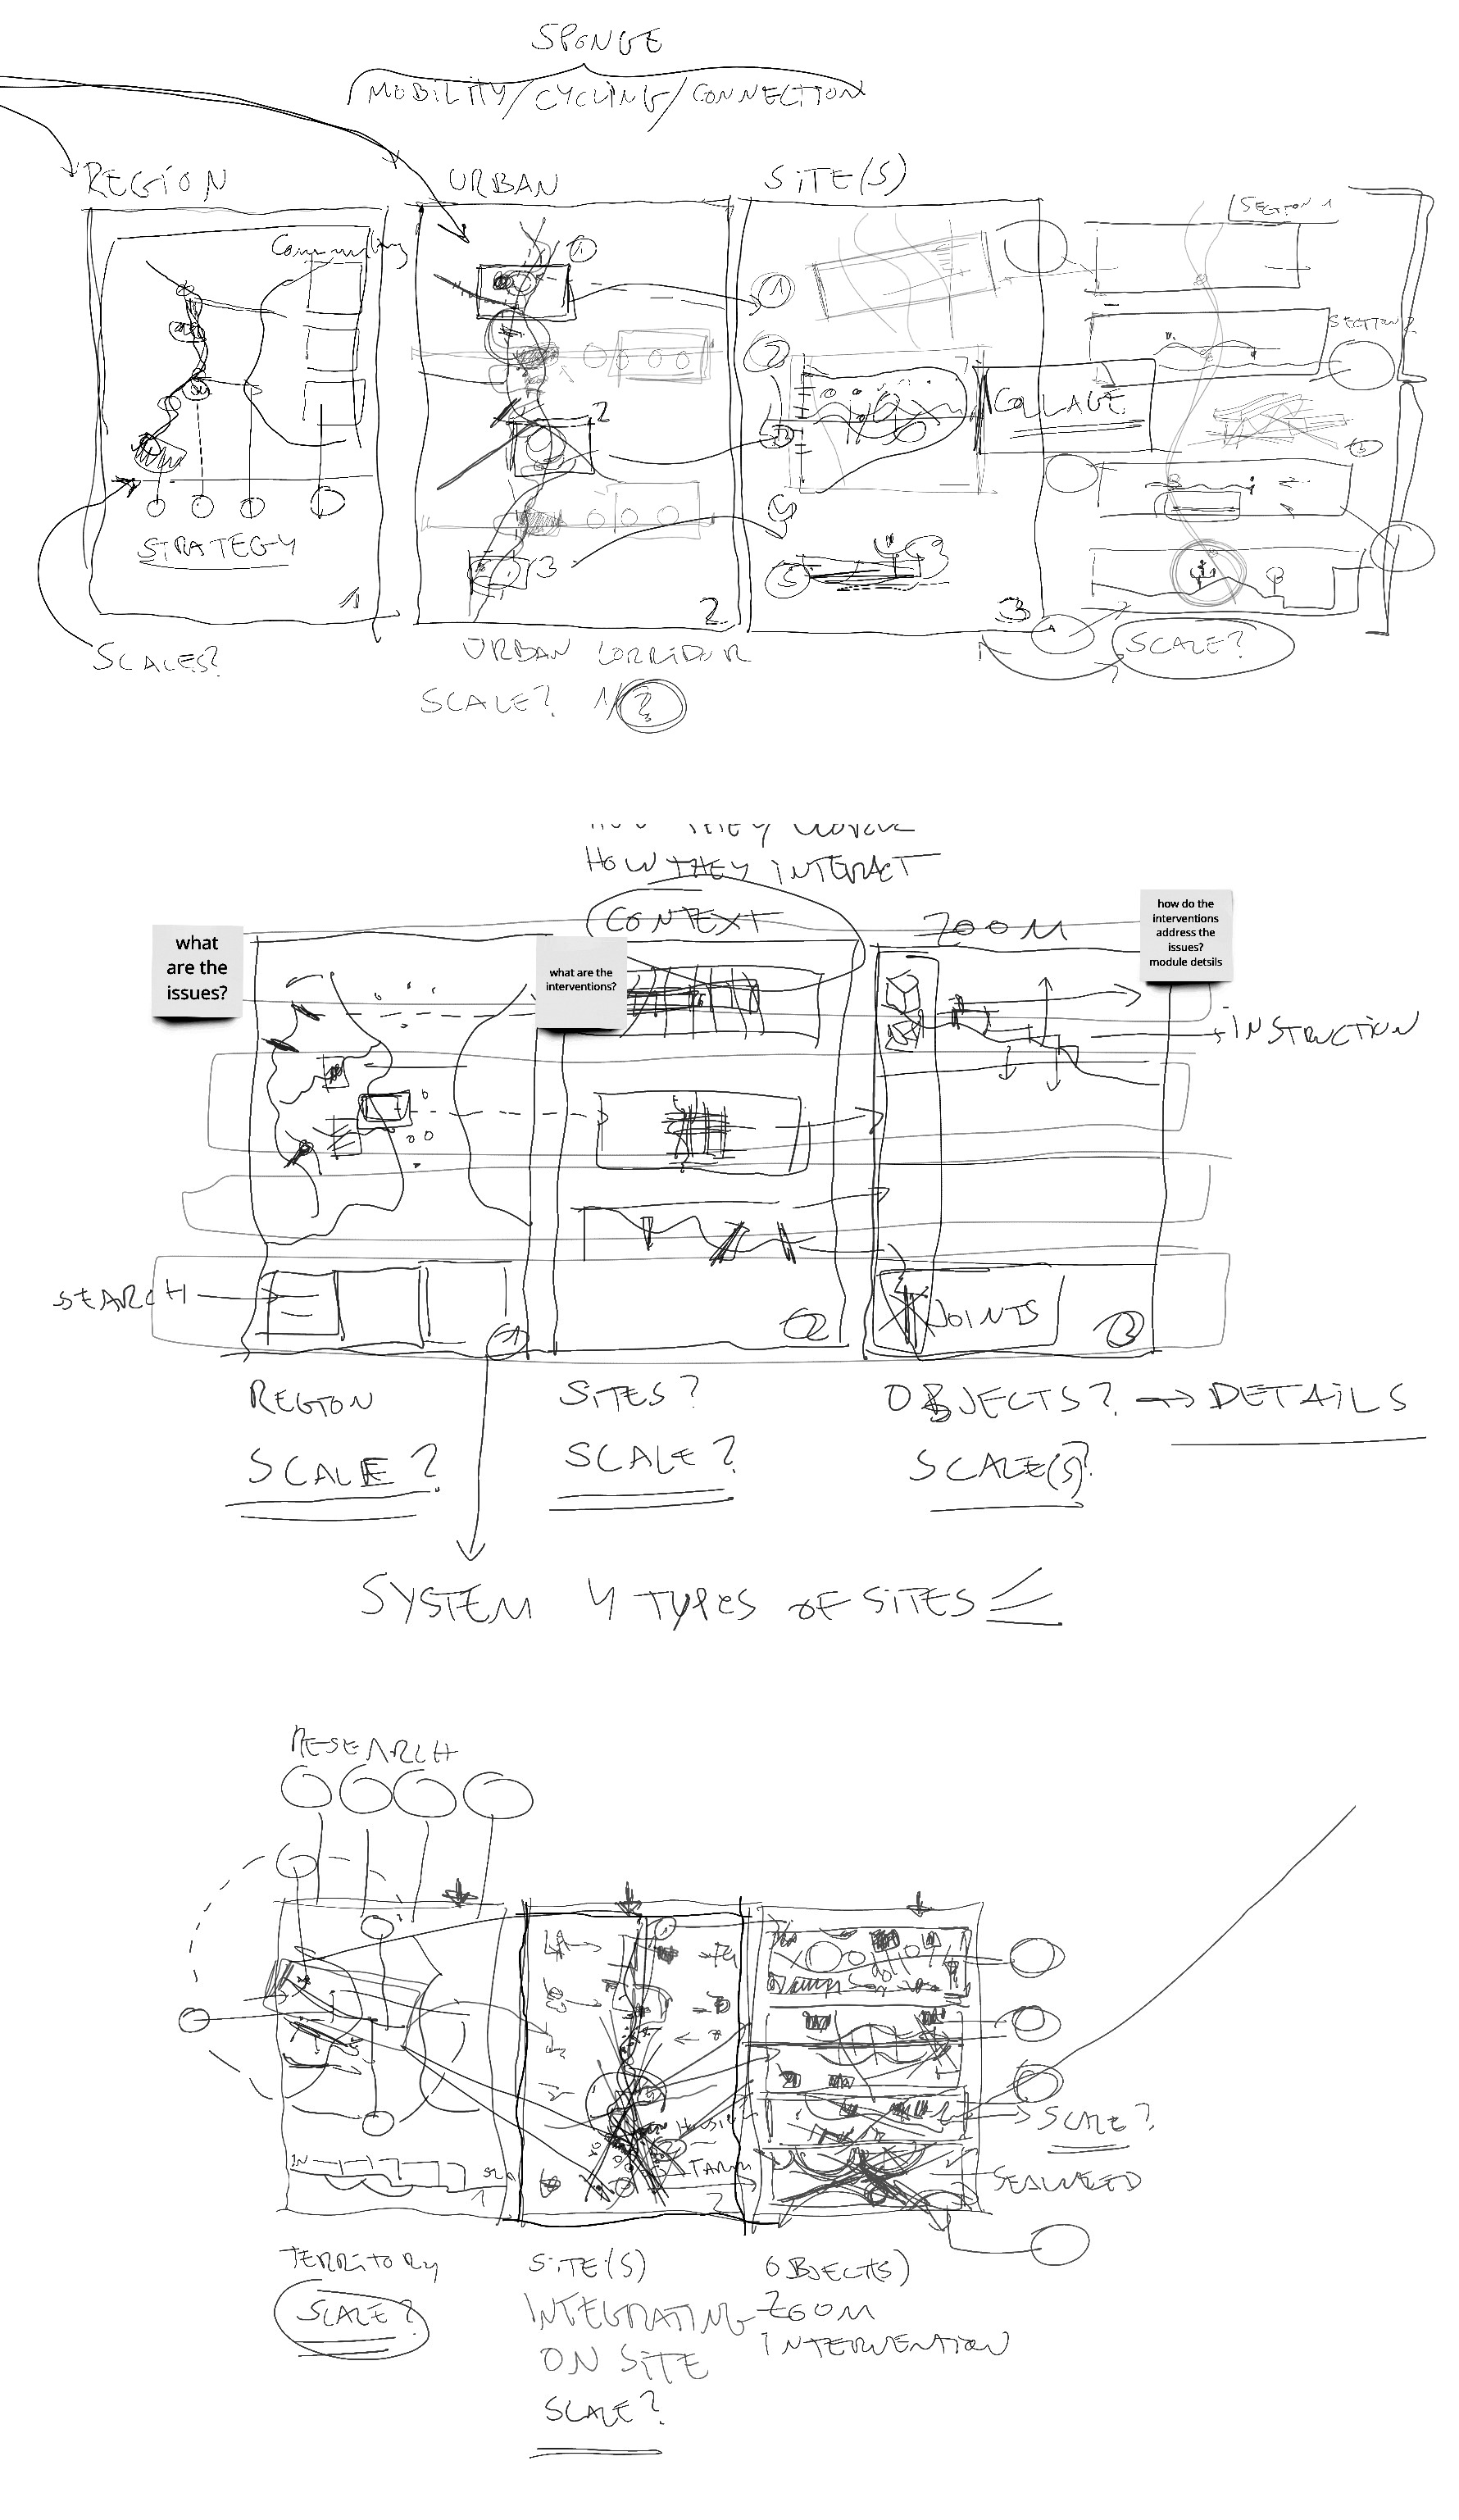 SPONGE
MOBILITY/CYCLING/CONNECTION
REGION
URBAN
SITE(S)
SECTION 1
Community
1
1
SECTION 2
2
COLLAGE
2
STRATEGY
3
3
5
1
2
3
SCALES?
URBAN CORRIDOR
SCALE?
SCALE? 1/?
HOW THEY INTERACT
CONTEXT
ZOOM
what
are the
issues?
what are the
interventions?
how do the
interventions
address the
issues?
module detsils
INSTRUCTION
SEARCH
JOINTS
1
2
3
REGION
SCALE?
SITES?
SCALE?
OBJECTS? → DETAILS
SCALE(S)?
SYSTEM 4 TYPES OF SITES
RESEARCH
1
SCALE?
SEAWEED
1
2
TERRITORY
SCALE?
SITE(S)
INTEGRATING
ON SITE
SCALE?
OBJECT(S)
ZOOM
INTERVENTION